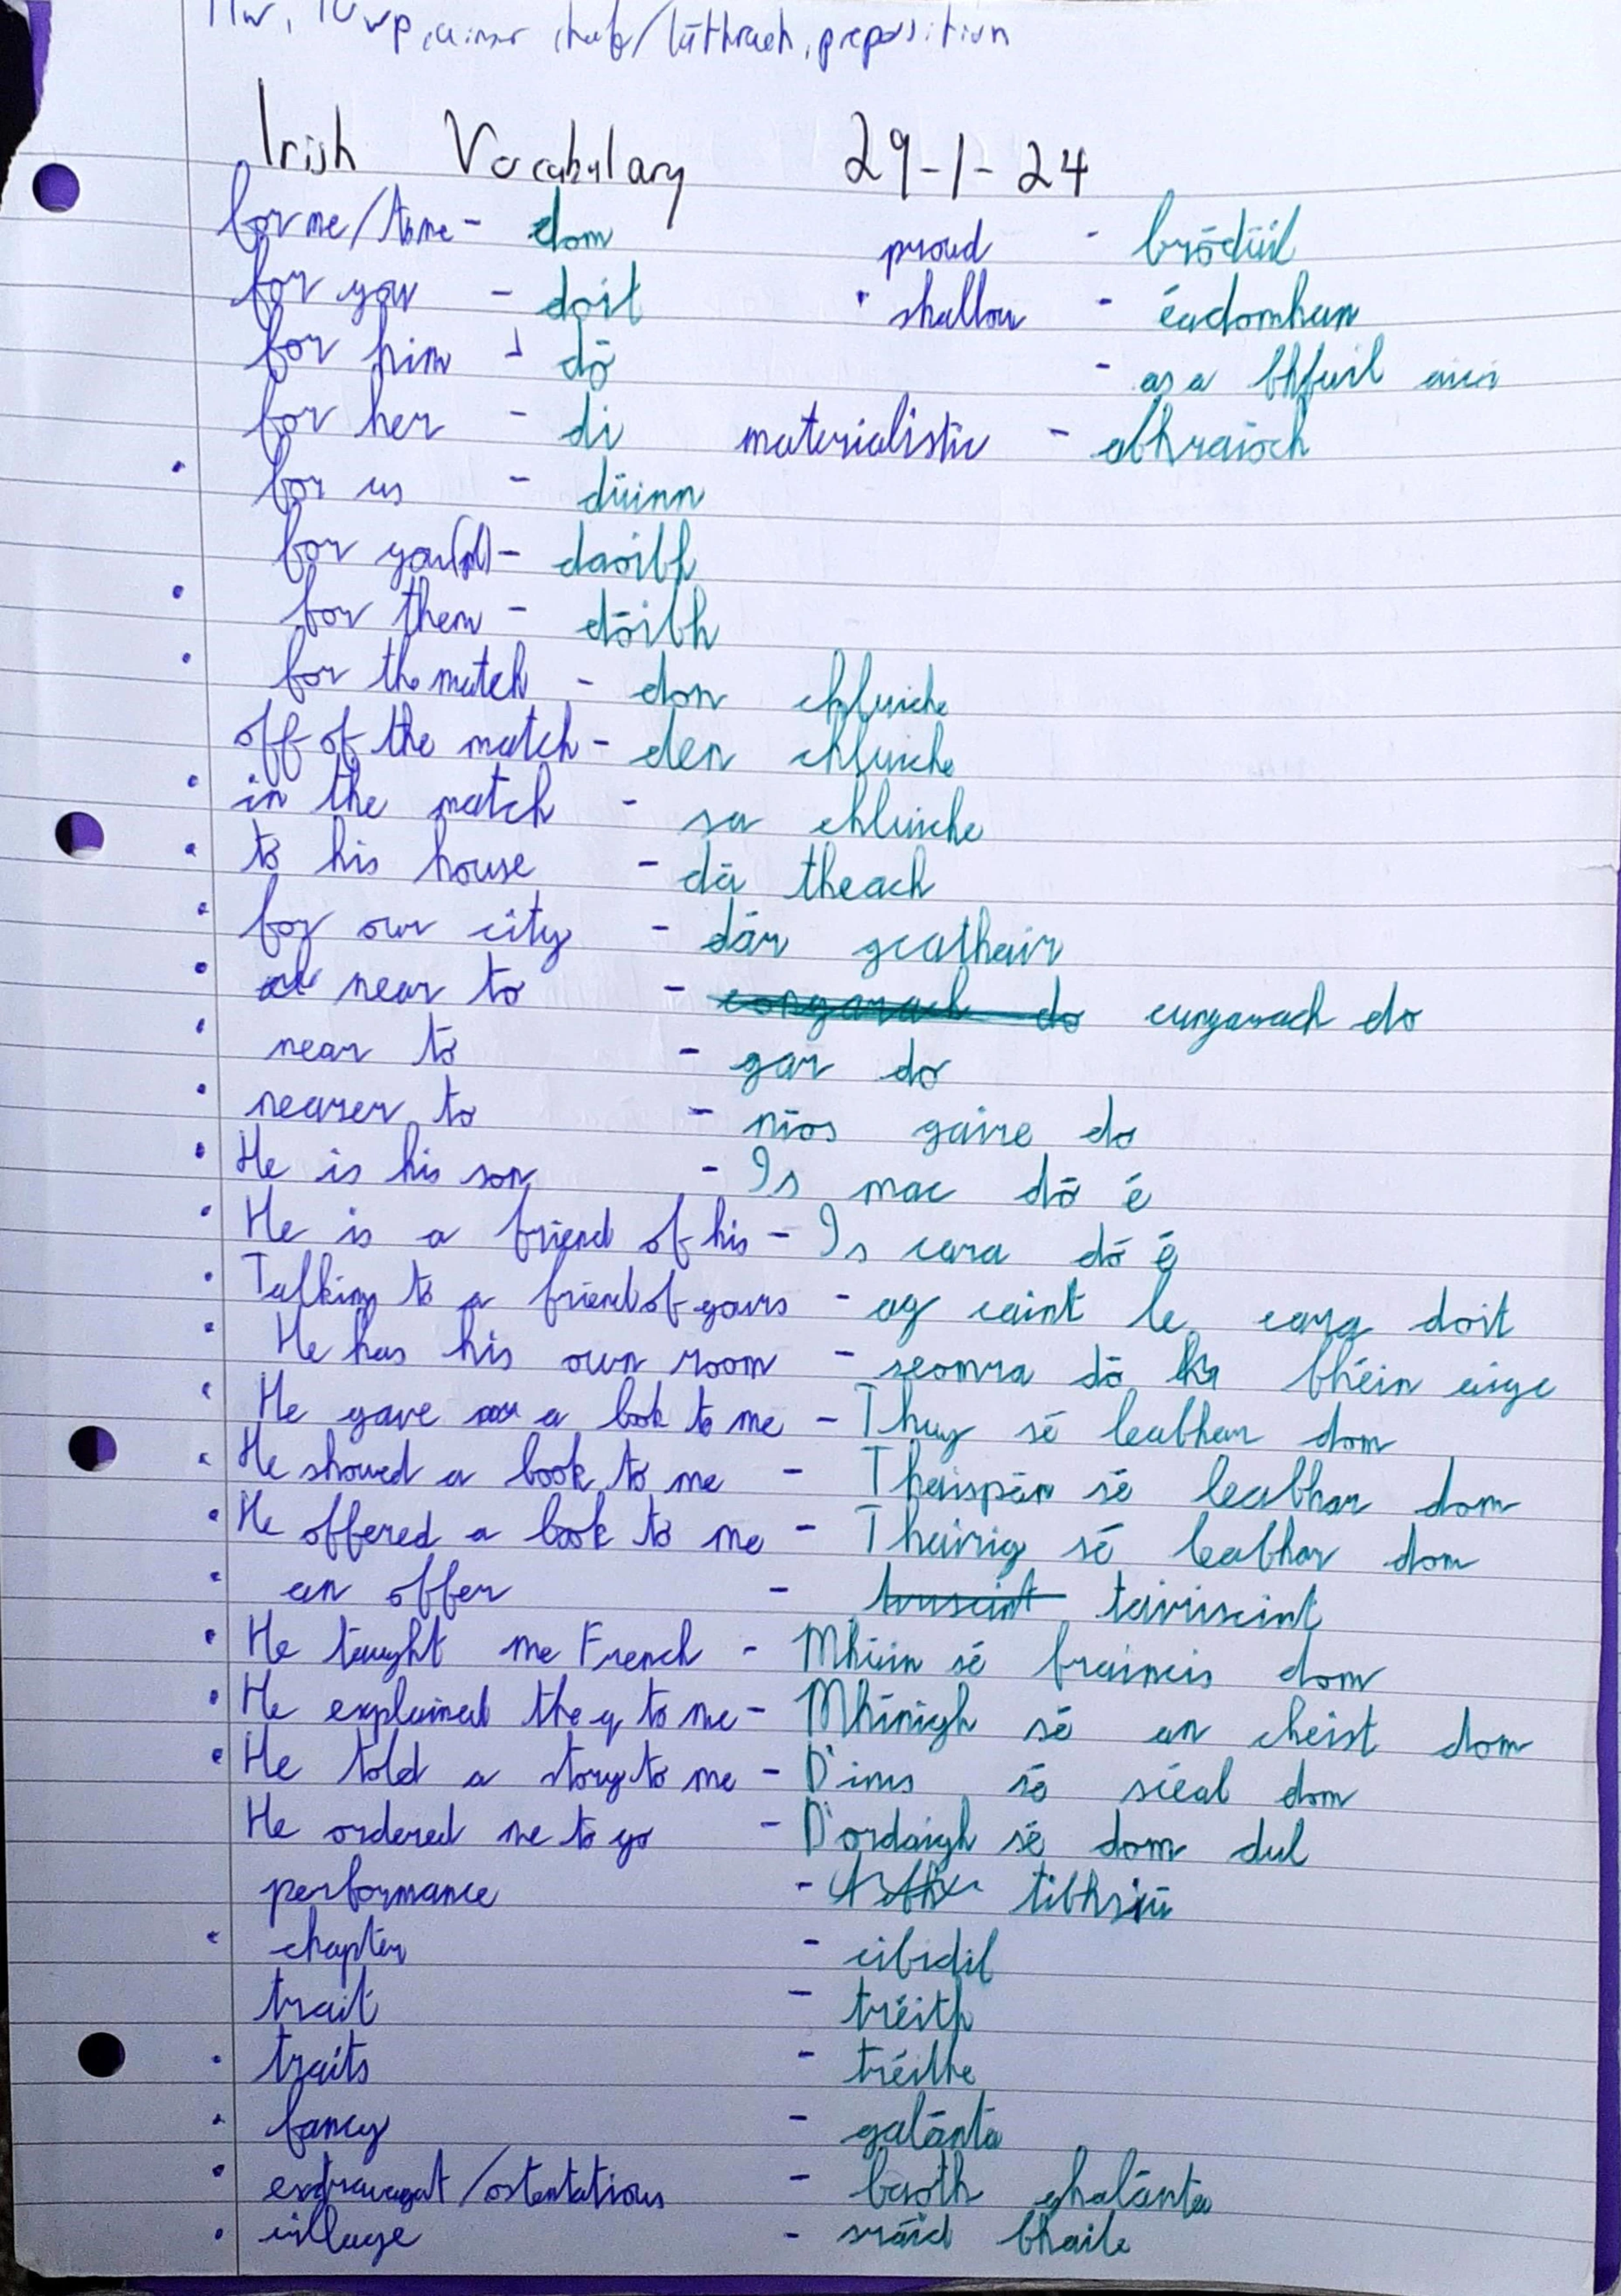 /láthrach, preposition
Irish Vocabulary 29-1-24
for me/to me - dom
proud - bródúil
for you - doit
shallow - éadomhan
for him - dó
- as a bhfuil
for her - di
materialistic - ábhraíoch
for us - dúinn
for you(pl) - daoibh
for them - dóibh
for the match - don chluiche
off of the match - den chluiche
in the match - sa chluiche
to his house - dá theach
for our city - dár gcathair
near to - congarach do cungarach do
near to - gar do
nearer to - níos gaire do
He is his son - Is mac dó é
He is a friend of his - Is cara dó é
Talking to a friend of yours - ag caint le cara doit
He has his own room - seomra dó bhéin aige
He gave a book to me - Thug sé leabhar dom
He showed a book to me - Thaispán sé leabhar dom
He offered a book to me - Thairig sé leabhar dom
an offer - tairiscint
He taught me French - Mhúin sé fraincis dom
He explained the q to me - Mhínigh sé an cheist dom
He told a story to me - D'inis sé scéal dom
He ordered me to go - D'ordaigh sé dom dul
performance - tibhriú
chapter - cibidil
trait - tréith
traits - tréithe
fancy - galánta
extravagat/ostentatious - baoth ghalánta
village - sráid bhaile